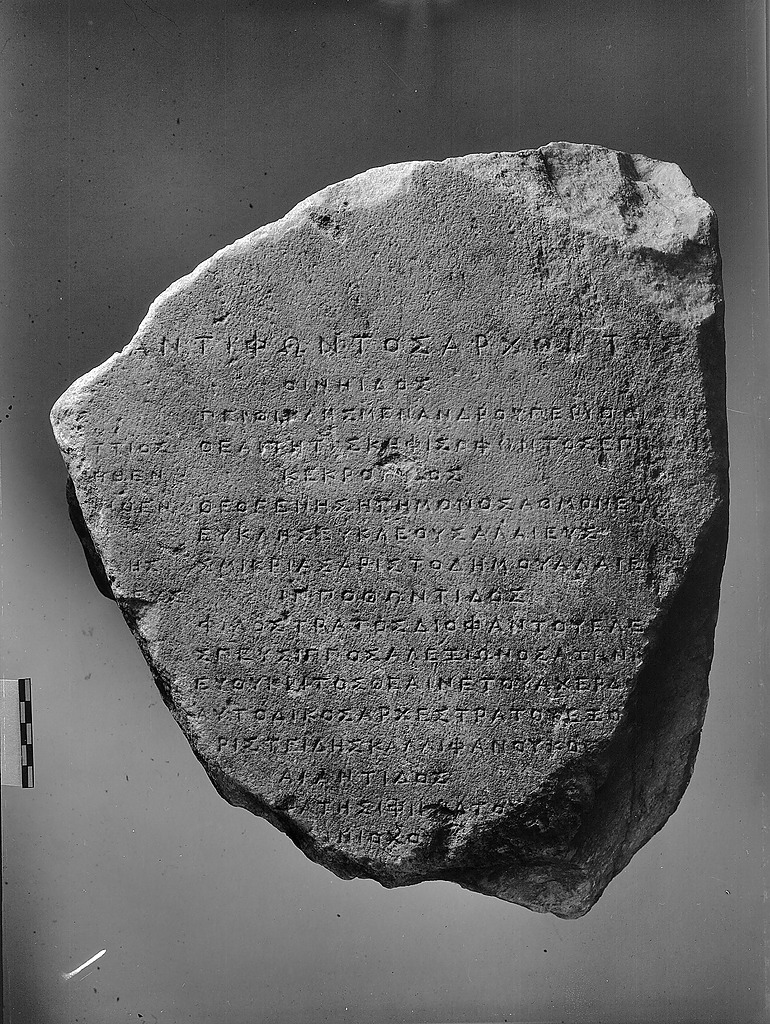 ΑΝΤΙΦΩΝΤΟΣΑΡΧΟΝΤΟΣ
ΟΙΝΗΙΔΟΣ
ΠΕΙΘΙΚΛΗΣΜΕΝΑΝΔΡΟΥΠΕΡΙΘΟΙ
ΤΤΙΟΣ ΘΕΑΙΤΗΤΟΣΚΗΦΙΣΟΦΩΝΤΟΣΕΠΙ
ΗΘΕΝ ΚΕΚΡΟΠΙΔΟΣ
ΗΘΕΝ ΘΕΟΓΕΝΗΣΗΓΗΜΟΝΟΣΑΘΜΟΝΕΥ
ΕΥΚΛΗΣΕΥΚΛΕΟΥΣΑΛΑΙΕΥΣ
ΗΣ ΣΜΙΚΡΙΑΣΑΡΙΣΤΟΔΗΜΟΥΑΛΑΙΕ
ΙΠΠΟΘΩΝΤΙΔΟΣ
ΦΙΛΟΣΤΡΑΤΟΣΔΙΟΦΑΝΤΟΥΕΛΕ
ΣΠΕΥΣΙΠΠΟΣΑΛΕΞΙΩΝΟΣΑΖΗΝΙ
ΕΥΘΥΚΡΙΤΟΣΘΕΑΙΝΕΤΟΥΑΧΕΡΔ
ΥΤΟΔΙΚΟΣΑΡΧΕΣΤΡΑΤΟΥΕΞΟ
ΡΙΣΤΕΙΔΗΣΚΑΛΛΙΦΑΝΟΥΚΟΕ
ΑΙΑΝΤΙΔΟΣ
ΑΤΗΣΙΦΙΚΡΑΤΟΥ
ΝΙΟΧΟ